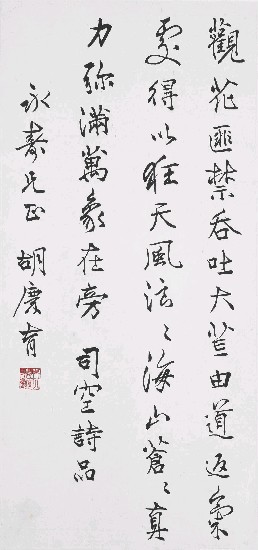 觀花匪禁吞吐大荒由道返氣
處得以狂天風浪々海山蒼々真
力弥滿萬象在旁 司空詩品
永壽兄正 胡慶育